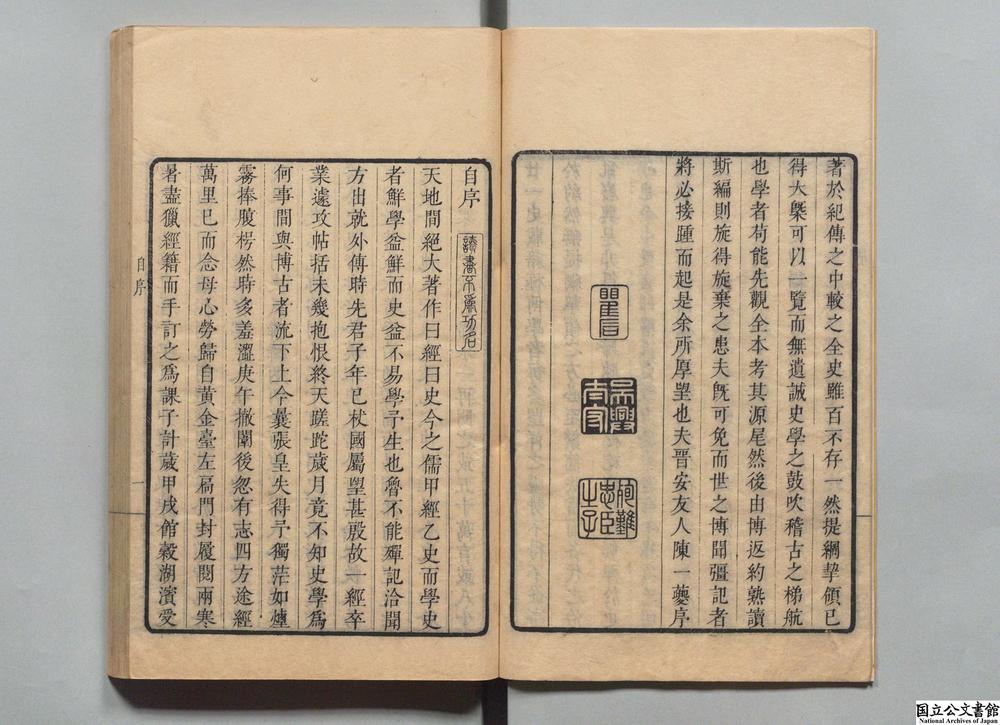 著於紀傳之中較之全史雖百不存一然提綱挈領已
得大槩可以一覽而無遺誠史學之鼓吹稽古之梯航
也學者苟能先觀全本考其源尾然後由博返約熟讀
斯編則旋得旋棄之患夫旣可免而世之博聞彊記者
將必接踵而起是余所厚望也夫晉安友人陳一夔序
吳興
太守
殉難
忠臣
之子
自序
讀書不爲功名
天地間絕大著作曰經曰史今之儒甲經乙史而學史
者鮮學益鮮而史益不易學予生也魯不能殫記洽聞
方出就外傅時先君子年已杖國屬望甚殷故一經卒
業遽攻帖括未幾抱恨終天蹉跎歲月竟不知史學爲
何事間與博古者流下上今曩張皇失得予獨茫如煙
霧捧腹楞然時多羞澀庚午撤闈後忽有志四方途經
萬里已而念母心勞歸自黄金臺左扃門封履閱兩寒
暑盡獵經籍而手訂之爲課子計歲甲戌館穀湖濱受
自序
一
国立公文書館
National Archives of Japan